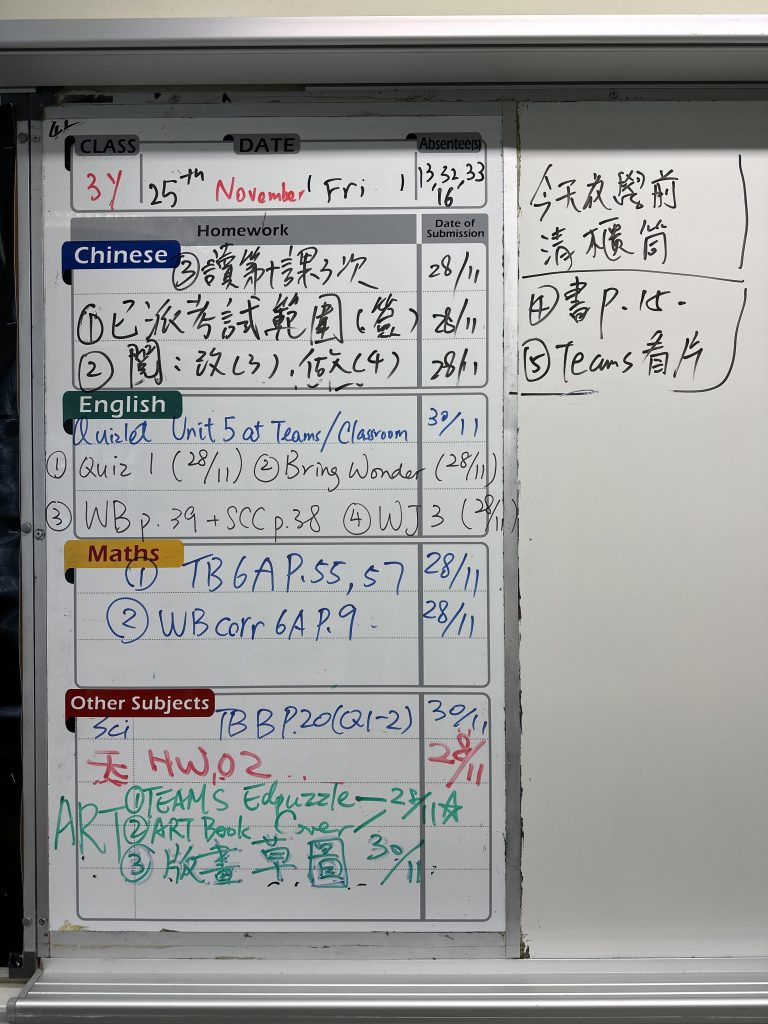 CLASS DATE Absentee(s)
3Y 25th November (Fri) 13, 32, 33
16
Homework Date of Submission
Chinese
③讀第十課3次 28/11
①已派考試範圍(簽) 28/11
② 閱：改(3), (4) 28/11
English
Quizlet Unit 5 at Teams/Classroom 30/11
① Quiz 1 (28/11) ② Bring Wonder (28/11)
③ WB p.39 + SCC p.38 ④ WJ 3 (28/11)
Maths
① TB 6A P.55, 57 28/11
② WB corr 6A P.9 28/11
Other Subjects
Sci TB B P.20 (Q1-2) 30/11
HW, 02 28/11
ART ①TEAMS Edpuzzle — 28/11☆
②ART Book Cover
③版畫草圖 30/11
今天放學前
清櫃筒
④書 p.15.
⑤Teams看片